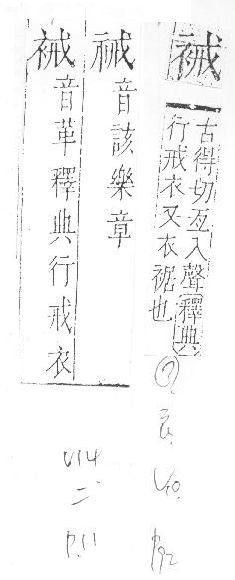 裓
古得切亙入聲釋典
行戒衣又衣裾也
P92
祴音該樂章
裓音革釋典行戒衣
V14
二
P.11